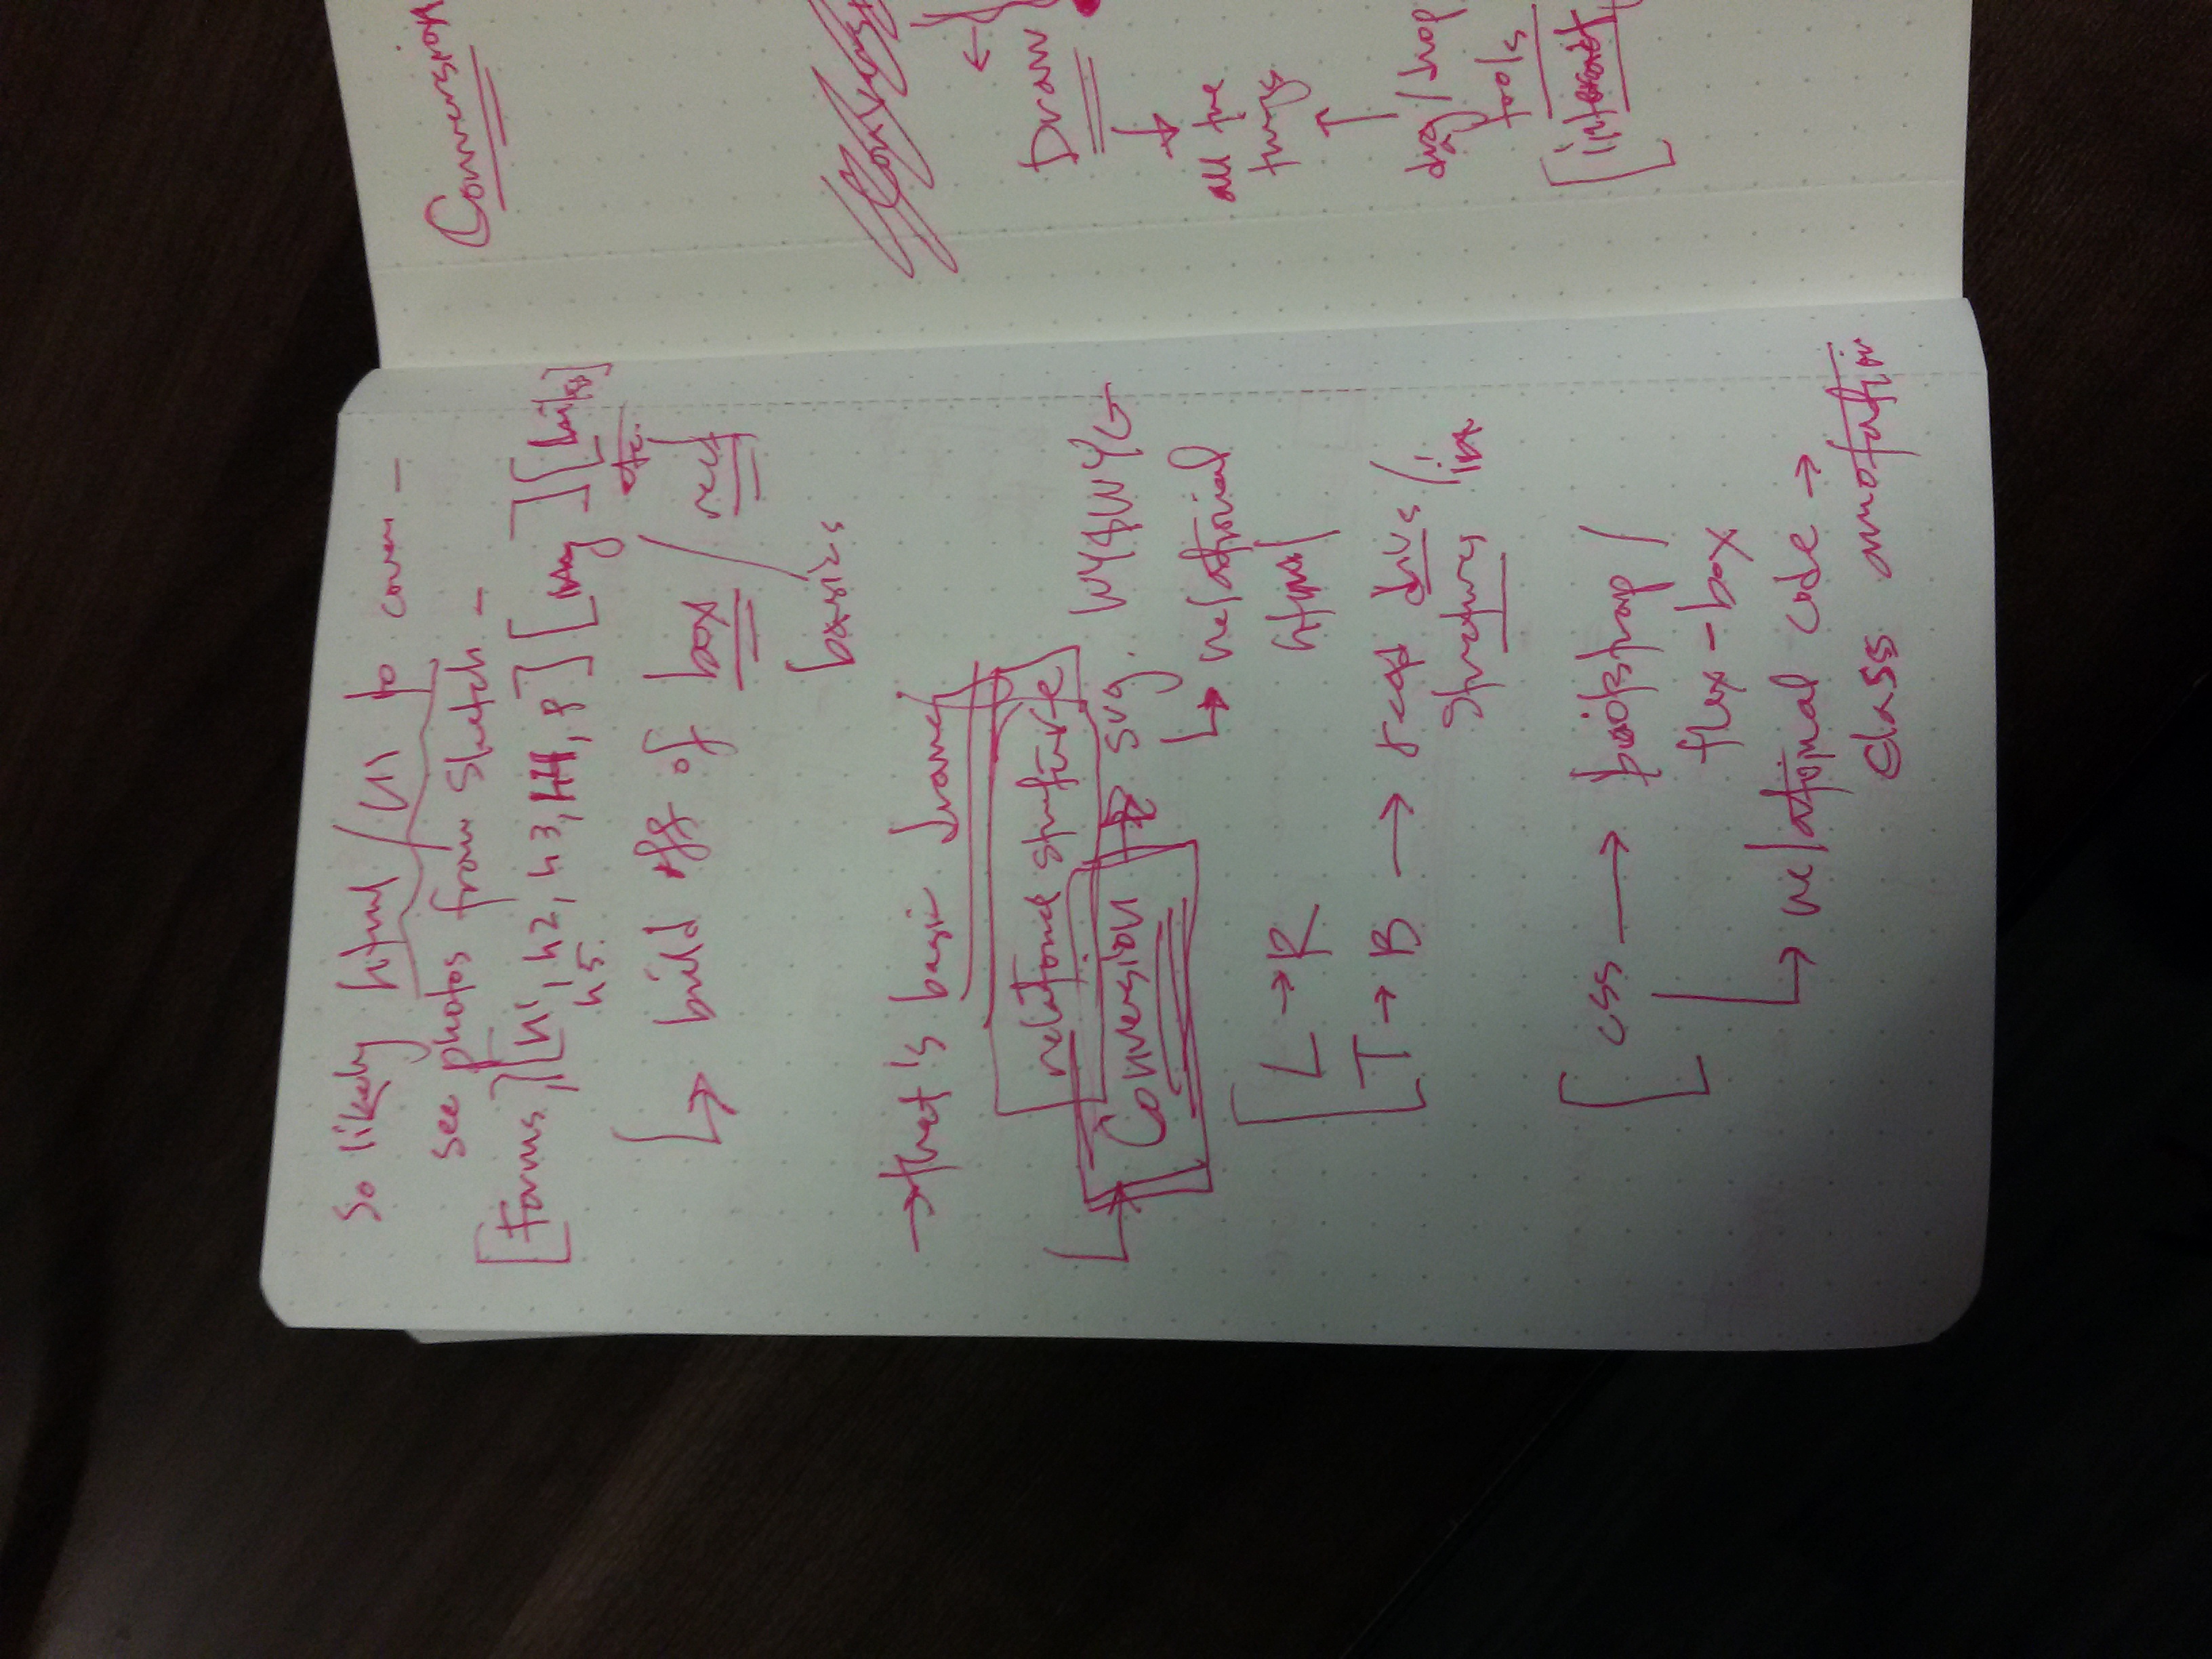 So likely html / UI to cover -
see photos from sketch -
[forms,] [h1, h2, h3, H4, p] [img] [links]
h5.
etc.
↳ build off of box / rect
basics
→ that's basic drawing.
relational structure
↳ Conversion → svg. WYSIWYG
↳ relational
html
[ L → R
T → B → read divs /
structures
[ css → bootstrap /
flex-box
↳ relational code →
class annotation
Conversion
Draw
all the
things
drag/drop
tools
[